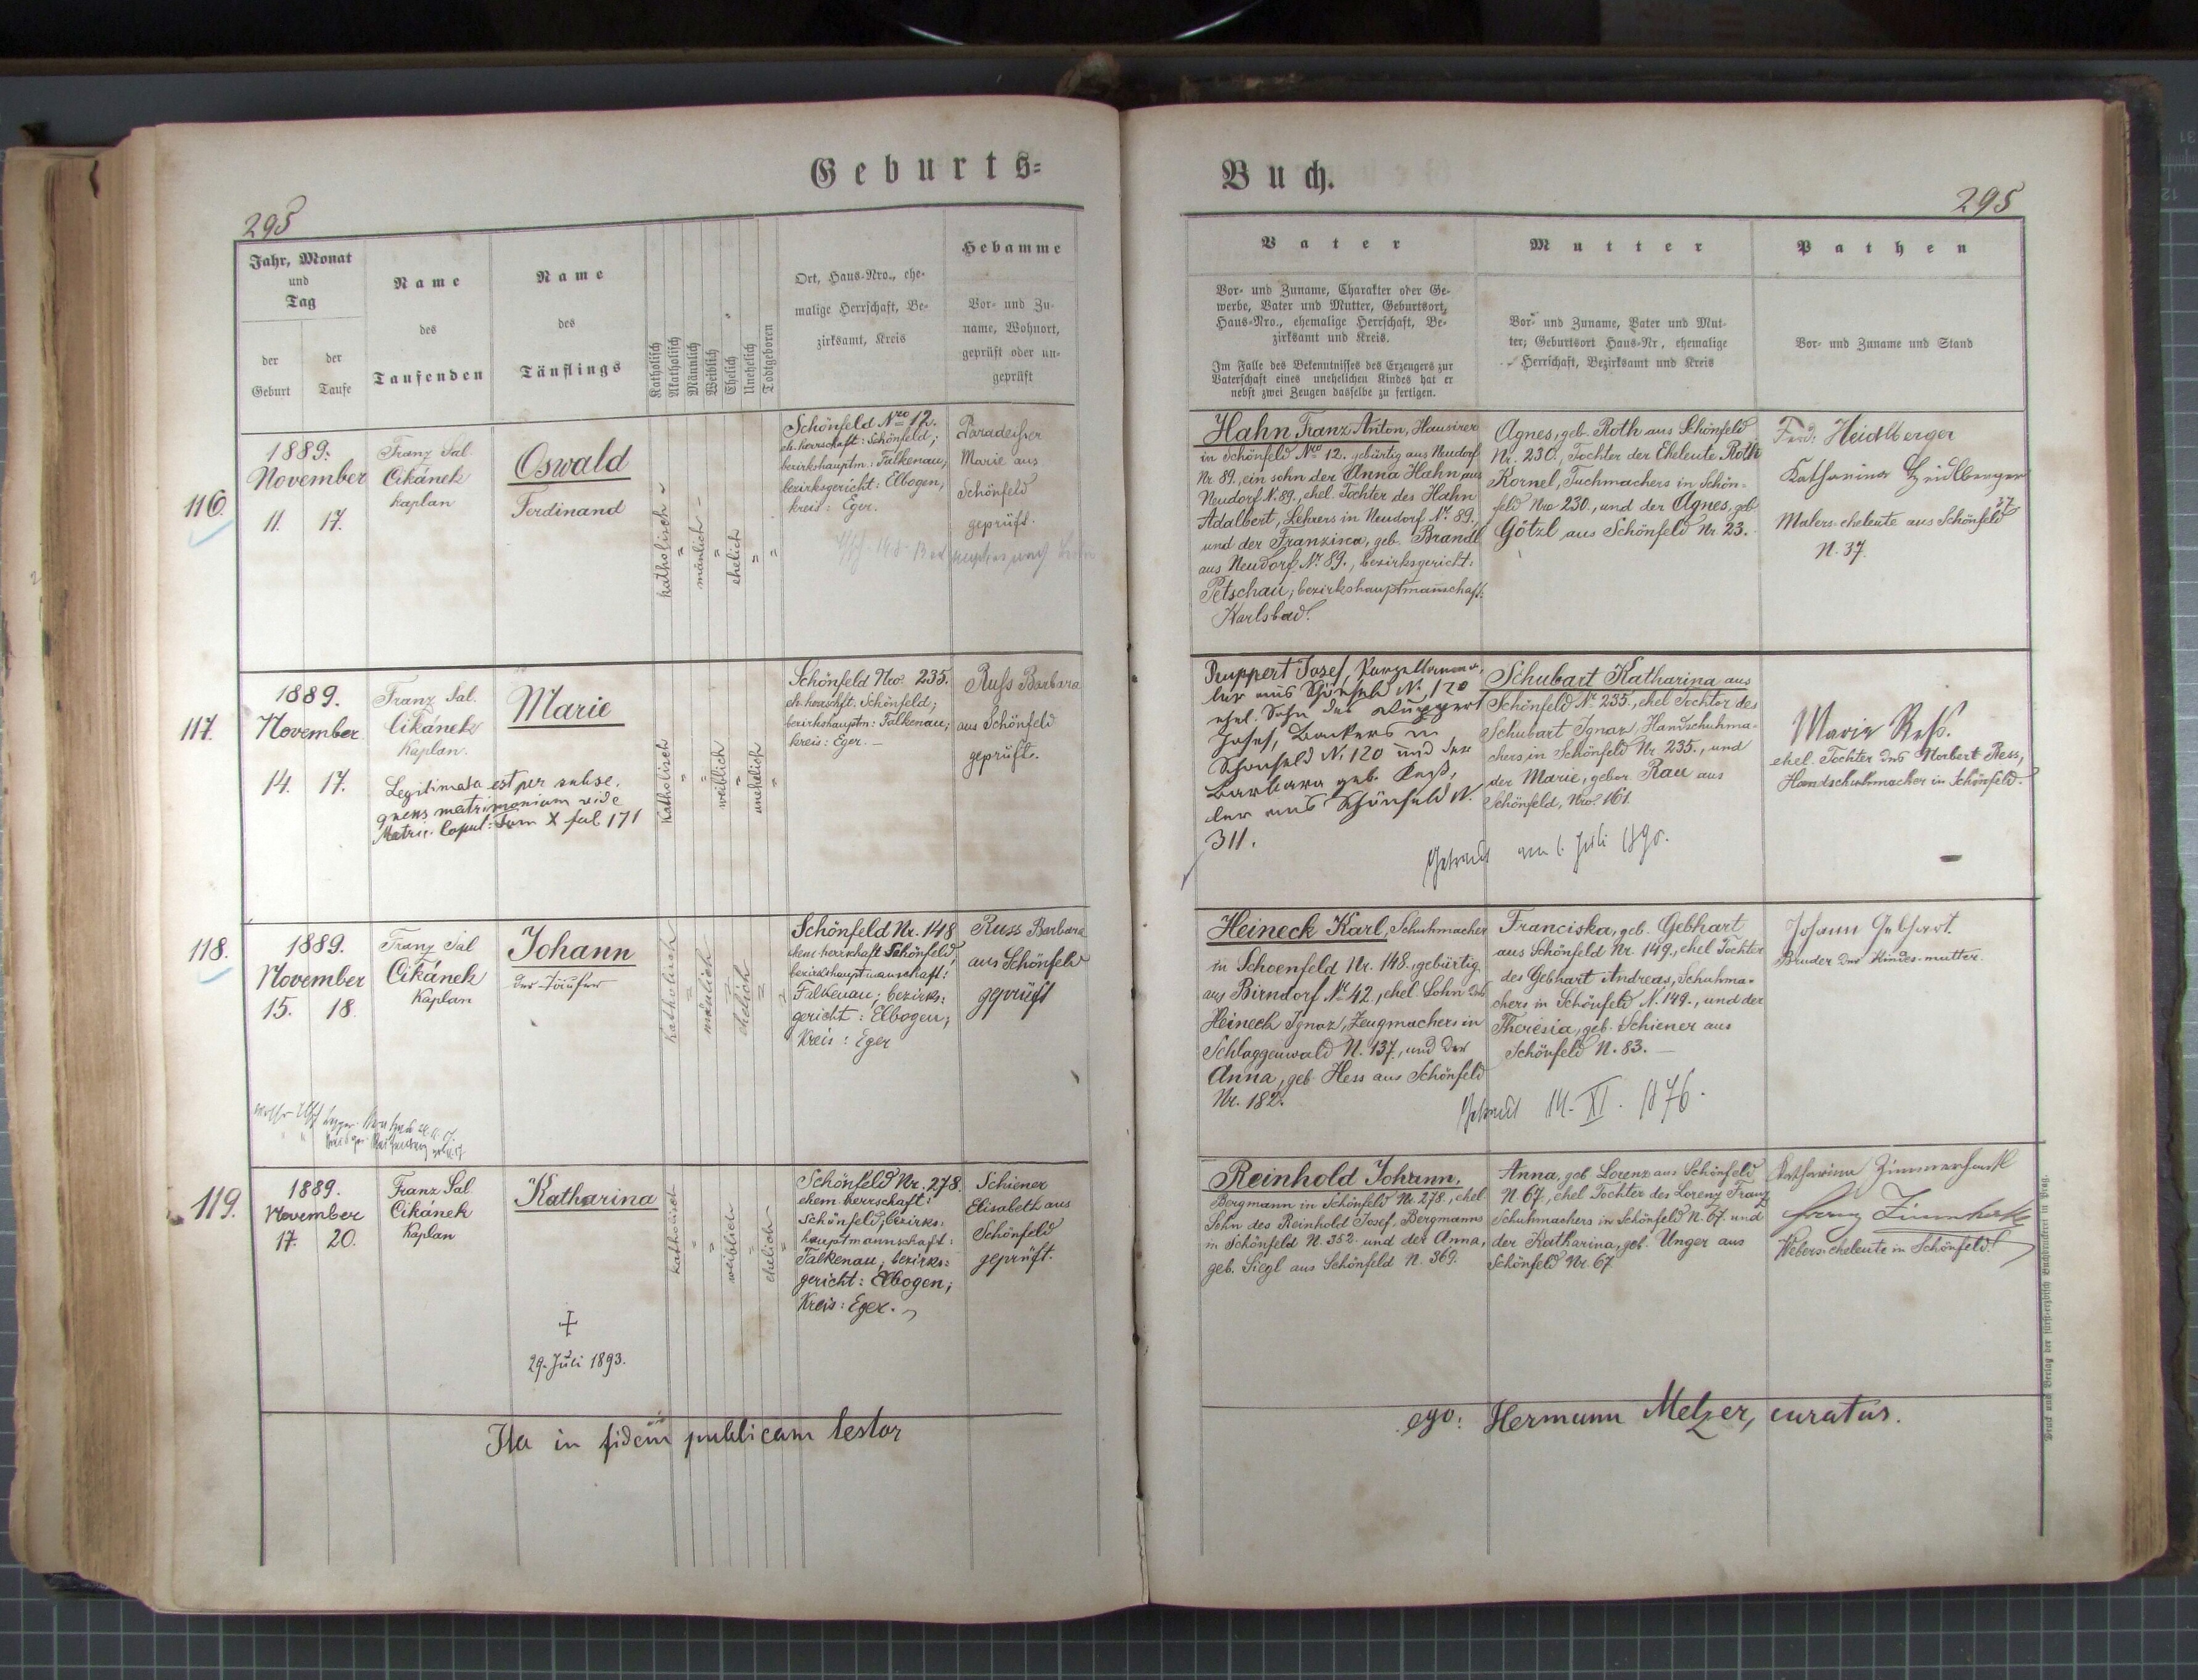 Geburts-
Buch.
295
295
Jahr, Monat
und
Tag
der
Geburt
der
Taufe
Name
des
Taufenden
Name
des
Täuflings
Katholisch
Akatholisch
Männlich
Weiblich
Ehelich
Unehelich
Todtgeboren
Ort, Haus-Nro., ehe-
malige Herrschaft, Be-
zirksamt, Kreis
Hebamme
Vor- und Zu-
name, Wohnort,
geprüft oder un-
geprüft
Vater
Vor- und Zuname, Charakter oder Ge-
werbe, Vater und Mutter, Geburtsort,
Haus-Nro., ehemalige Herrschaft, Be-
zirksamt und Kreis.
Im Falle des Bekenntnisses des Erzeugers zur
Vaterschaft eines unehelichen Kindes hat er
nebst zwei Zeugen dasselbe zu fertigen.
Mutter
Vor- und Zuname, Vater und Mut-
ter; Geburtsort Haus-Nr, ehemalige
Herrschaft, Bezirksamt und Kreis
Pathen
Vor- und Zuname und Stand
116.
1889.
November
11. 17.
Franz Sal.
Cikánek
Kaplan
Oswald
Ferdinand
katholisch
mänlich
ehelich
Schönfeld Nro 12.
eh. herrschaft: Schönfeld;
bezirkshauptm: Falkenau;
bezirksgericht: Elbogen,
kreis: Eger.
Paradeisser
Marie aus
Schönfeld
geprüft.
Hahn Franz Anton, Hausirer
in Schönfeld Nro 12. gebürtig aus Neudorf
Nr. 89., ein sohn der Anna Hahn aus
Neudorf N. 89., ehel. Tochter des Hahn
Adalbert, Lehrers in Neudorf Nr. 89.,
und der Franzisca, geb. Brandl
aus Neudorf Nr. 89., bezirksgericht:
Petschau; bezirkshauptmannschaft:
Karlsbad.
Agnes, geb. Roth aus Schönfeld
Nr. 230., Tochter der Eheleute Roth
Kornel, Tuchmachers in Schön-
feld Nro 230., und der Agnes, geb.
Götzl aus Schönfeld Nr. 23.
Ferd. Heidlberger
Katharina Heidlberger
37
Malers-eheleute aus Schönfeld
N. 37.
117.
1889.
November
14. 17.
Franz Sal.
Cikánek
Kaplan.
Legitimata est per subse.
quens matrimonium vide
Matric. Copul: Tom X fol 171
Marie
katholisch
weiblich
unehelich
Schönfeld Nro. 235.
eh. herrschft. Schönfeld;
bezirkshauptm: Falkenau;
kreis: Eger. —
Russ Barbara
aus Schönfeld
geprüft.
Ruppert Josef, Porzellanma-
ler aus Schönfeld N. 120
ehel. Sohn des Ruppert
Josef, Bäckers in
Schönfeld N. 120 und der
Barbara geb.
aus Schönfeld N.
311.
Schubart Katharina aus
Schönfeld Nr. 235., ehel Tochter des
Schubart Ignaz, Handschuhma-
chers in Schönfeld Nr. 235., und
der Marie, gebor. Rau aus
Schönfeld, Nro. 161.
Getraut am 6. Juli 1890.
Marie Reß.
ehel. Tochter des Norbert Ress,
Handschuhmacher in Schönfeld.
118.
1889.
November
15. 18.
Franz Sal
Cikánek
Kaplan
Johann
der Täufer
katholisch
mänlich
ehelich
Schönfeld Nr. 148
ehem. herrschaft Schönfeld,
bezirkshauptmanschaft:
Falkenau; bezirks:
gericht: Elbogen;
Kreis: Eger
Russ Barbara
aus Schönfeld
geprüft
Heineck Karl, Schuhmacher
in Schoenfeld Nr. 148., gebürtig
aus Birndorf Nr. 42., ehel. Sohn des
Heineck Ignaz, Zeugmachers in
Schlaggenwald N. 137., und der
Anna, geb. Hess aus Schönfeld
Nr. 182.
Franciska, geb. Gebhart
aus Schönfeld Nr. 149., ehel Tochter
des Gebhart Andreas, Schuhma-
chers in Schönfeld N. 149., und der
Theresia, geb. Schiener aus
Schönfeld N. 83. —
Getraut 14. XI. 1876.
Johann Gebhart.
Bruder der Kindes-mutter.
119.
1889.
November
17. 20.
Franz Sal
Cikánek
Kaplan
Katharina
+
29. Juli 1893.
katholisch
weiblich
ehelich
Schönfeld Nr. 278.
ehem. herrschaft:
Schönfeld, bezirks:
hauptmannschaft:
Falkenau; bezirks:
gericht: Elbogen;
Kreis: Eger.
Schiener
Elisabeth aus
Schönfeld
geprüft.
Reinhold Johann,
Bergmann in Schönfeld Nr. 278., ehel
Sohn des Reinhold Josef, Bergmanns
in Schönfeld N. 352. und der Anna,
geb. Siegl aus Schönfeld N. 369.
Anna, geb. Lorenz aus Schönfeld
N. 67., ehel. Tochter des Lorenz Franz
Schuhmachers in Schönfeld N. 67. und
der Katharina, geb. Unger aus
Schönfeld Nr. 67.
Katharina Zimmerhackl
Franz Zimmerhackl
Webers-eheleute in Schönfeld.
Ita in fidem publicam testor
ego: Hermann Melzer, curatus.
Druck und Verlag der fürst-erzbisch. Buchdruckerei in Prag.